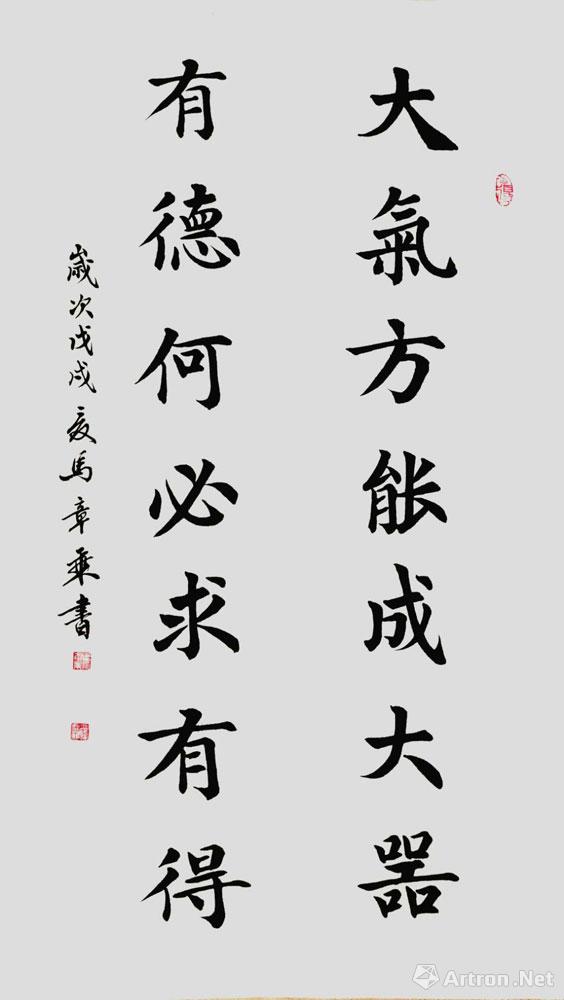 大氣方能成大器
有德何必求有得
歲次戊戌夏馬章乘書
Artron.Net